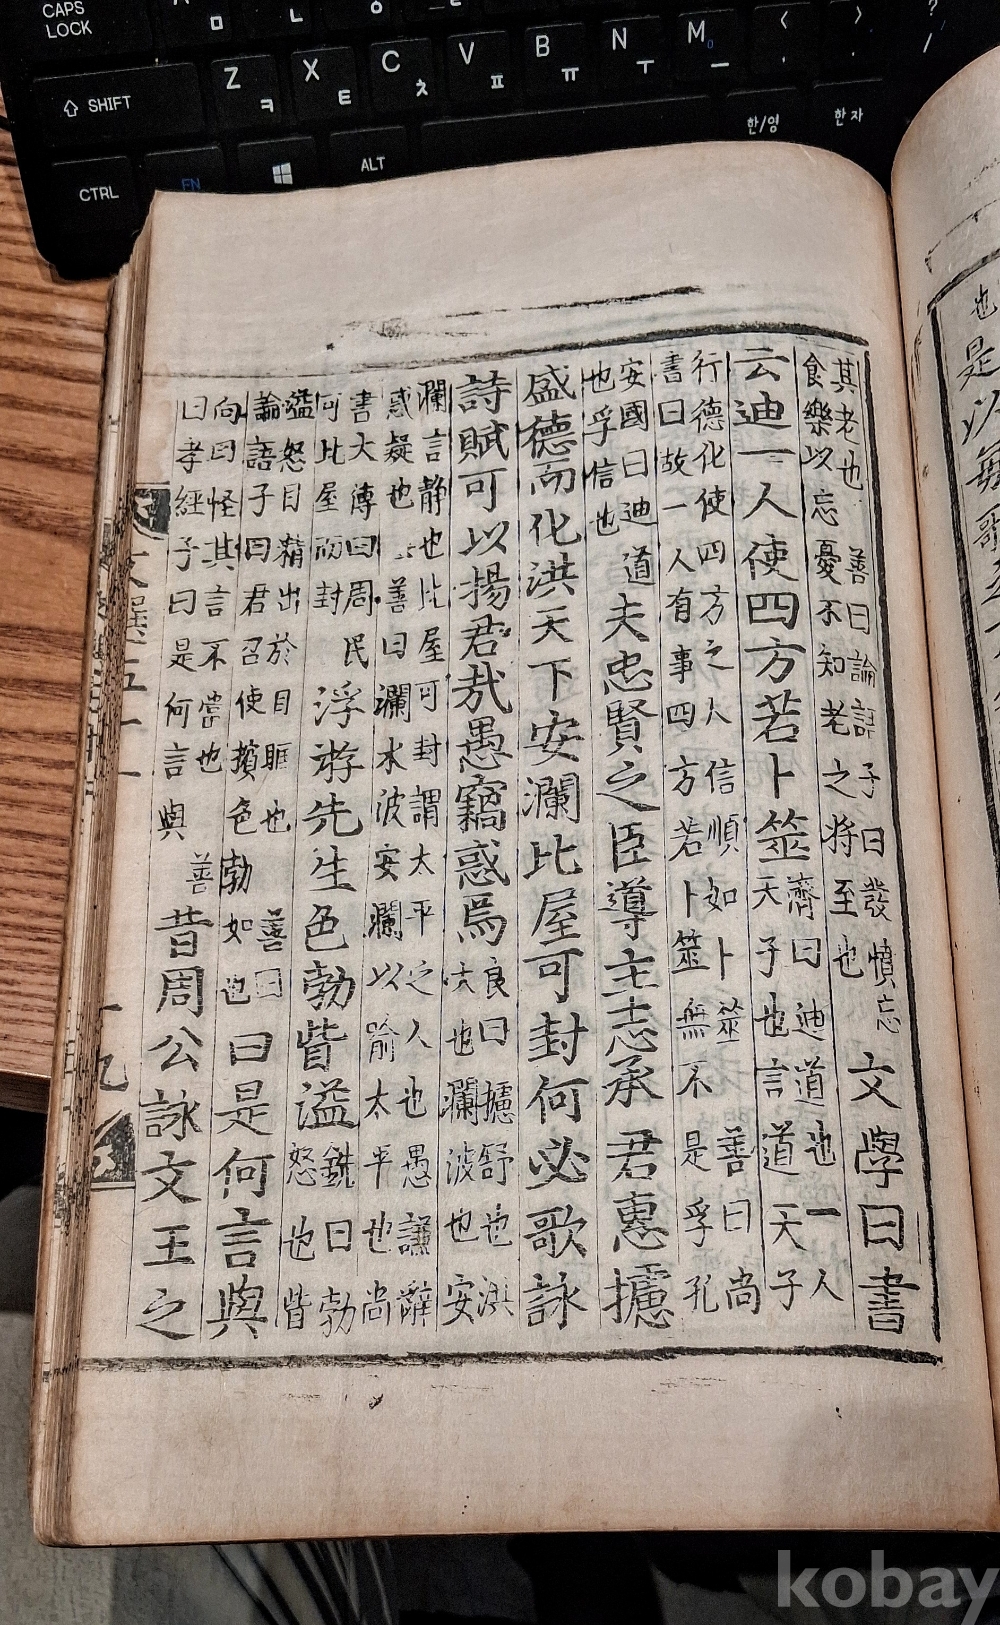 CAPS
LOCK
SHIFT
Z ㅋ
X ㅌ
C ㅊ
V ㅍ
B ㅠ
N ㅜ
M ㅡ
<
>
?
/
CTRL
FN
ALT
한/영
한자
也
是以
其老也善曰論語子曰發憤忘
食樂以忘憂不知老之將至也
文學曰書
云迪一人使四方若卜筮
濟曰迪道也一人
天子也言道天子
行德化使四方之人信順如卜筮善曰尚
書曰故一人有事四方若卜筮無不是孚孔
安國曰迪道
也孚信也
夫忠賢之臣導主志承君惠攄
盛德而化洪天下安瀾比屋可封何必歌詠
詩賦可以揚君哉愚竊惑焉
良曰攄舒也洪
大也瀾波也安
瀾言静也比屋可封謂太平之人也愚謙辭
惑疑也善曰瀾水波安瀾以喻太平也尚
書大傳曰周民
可比屋而封
浮游先生色勃眥溢
銑曰勃
怒也眥
溢怒目精出於目眶也善曰
論語子曰君召使擯色勃如也
曰是何言與
向曰怪其言不當也善
曰孝經子曰是何言與
昔周公詠文王之
文選五十一
十九
kobay